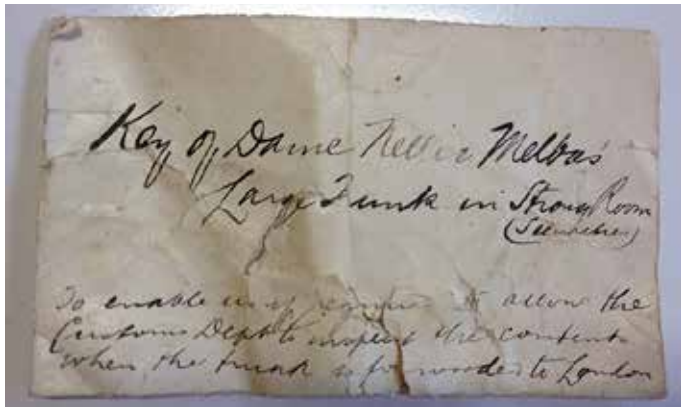 Key of Dame Nellie Melba's
Large Trunk in Strong Room
To enable us if required to allow the
Customs Dept to inspect the contents
when the trunk is forwarded to London